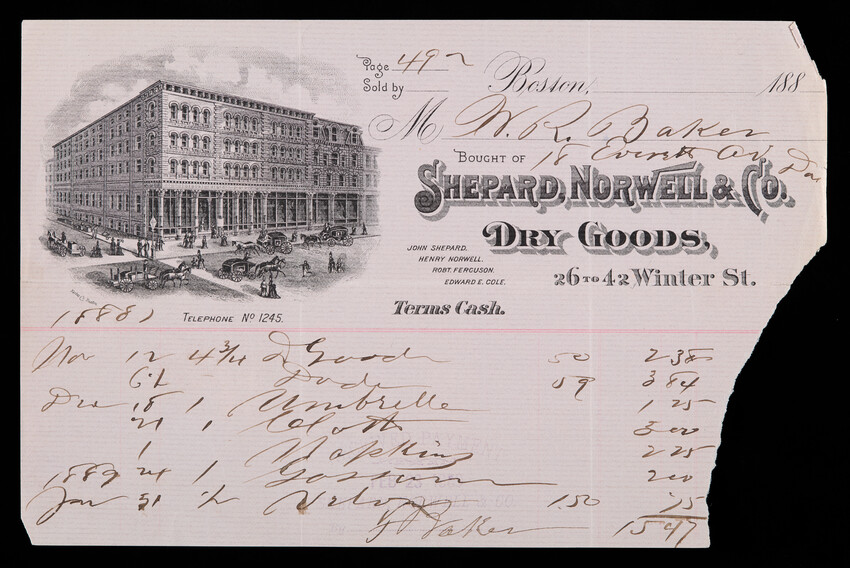 Page 492
Sold by
Boston, 188
M W. R. Baker
18 Everett Av Dor
BOUGHT OF
SHEPARD, NORWELL & CO.
DRY GOODS,
JOHN SHEPARD.
HENRY NORWELL.
ROBT. FERGUSON.
EDWARD E. COLE.
26 TO 42 Winter St.
Terms Cash.
TELEPHONE No 1245.
1888
Nov 12 4 3/4 D Goods 50 2 38
6 1/2 Dodo 59 3 84
Dec 18 1 Umbrella 1 25
21 1 Cloth 3 00
1 Napkins 2 25
1889 24 1 Gossamer 2 00
Jan 31 1/2 Velvet 1.50 75
Baker 15 47